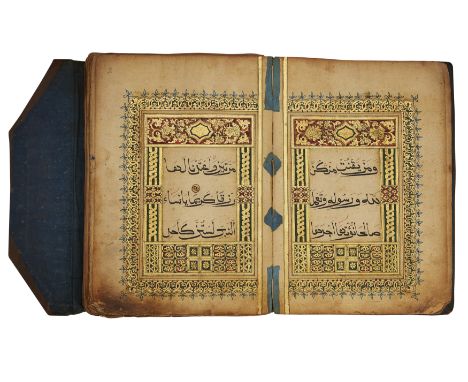 ومن يقنت منكن
لله ورسوله وتعمل
صالحا نؤتها اجرها
مرتين واعتدنا لها
رزقا كريما يانساء
النبى لستن كاحد